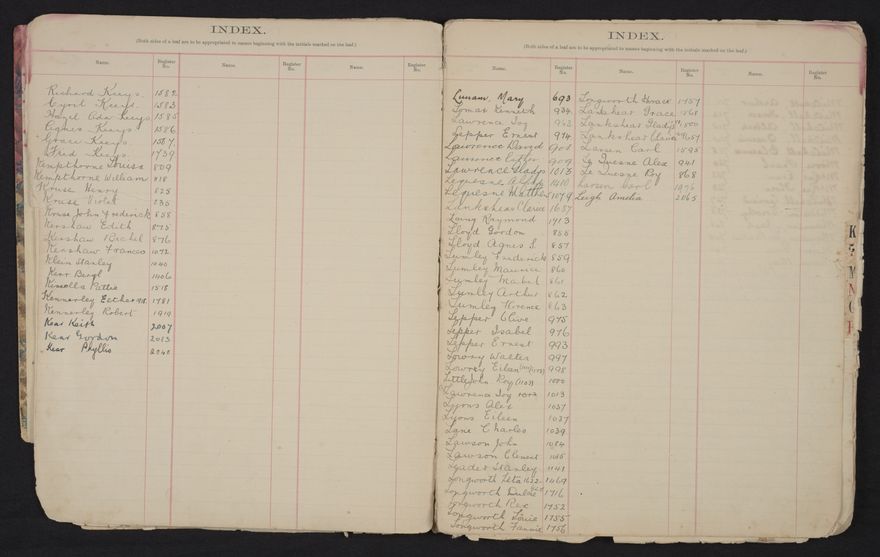 INDEX.
(Both sides of a leaf are to be appropriated to names beginning with the initials marked on the leaf.)
Name. Register No. Name. Register No. Name. Register No.
Richard Keeys 1582
Cyril Keeys 1583
Hazel Ada Keeys 1585
Agnes Keeys 1586
Grace Keeys 1587
Fred Keeys 1739
Kempthorne Louisa 809
Kempthorne William 818
Krouse Henry 825
Krouse Violet 835
Krouse John Frederick 858
Kershaw Edith 875
Kershaw Richel 876
Kershaw Frances 1072
Klein Stanley 1240
Kerr Beryl 1406
Kinsella Pattie 1518
Kennerley Esther 1781
Kennerley Robert 1919
Kear Keith 2007
Kear Gordon 2013
Kear Phyllis 2240
INDEX.
(Both sides of a leaf are to be appropriated to names beginning with the initials marked on the leaf.)
Name. Register No. Name. Register No. Name. Register No.
Lunam Mary 693
Lomas Kenneth 934
Lawrence Joy 963
Lepper Ernest 974
Lawrence David 908
Lawrence Esther 909
Lawrence Gladys 1013
Lequesne Alex 1410
Lequesne Matthew 1079
Lankshear Clarice 1657
Laing Raymond 1713
Lloyd Gordon 855
Lloyd Agnes S. 857
Lumley Frederick 859
Lumley Maurice 860
Lumley Mabel 861
Lumley Arthur 862
Lumley Florence 863
Lepper Clive 975
Lepper Isabel 976
Lepper Ernest 993
Lowry Walter 997
Lowrey Eilan 998
Littlejohn Roy (1107) 1000
Lawrence Joy 1013
Lyons Alex 1037
Lyons Eileen 1037
Lane Charles 1039
Lawson John 1084
Lawson Clement 1085
Leader Stanley 1141
Longworth Leta 1622 1469
Longworth Dulcie 1716
Longworth Rex 1752
Longworth Louie 1755
Longworth Fannie 1756
Longworth Horace 1757
Lankshear Grace
Lankshear Gladys
Lankshear Clarice 1657
Larsen Carl 1595
Le Quesne Alex 941
Le Quesne Roy 868
Larsen Carl 1976
Leigh Amelia 2065
K
M
N